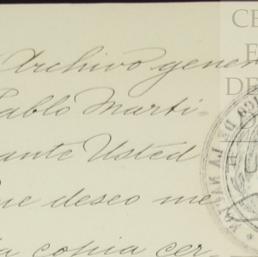 Archivo gener
Pablo Marti-
ante Usted
que deseo me
la copia cer-
CE
E
DE